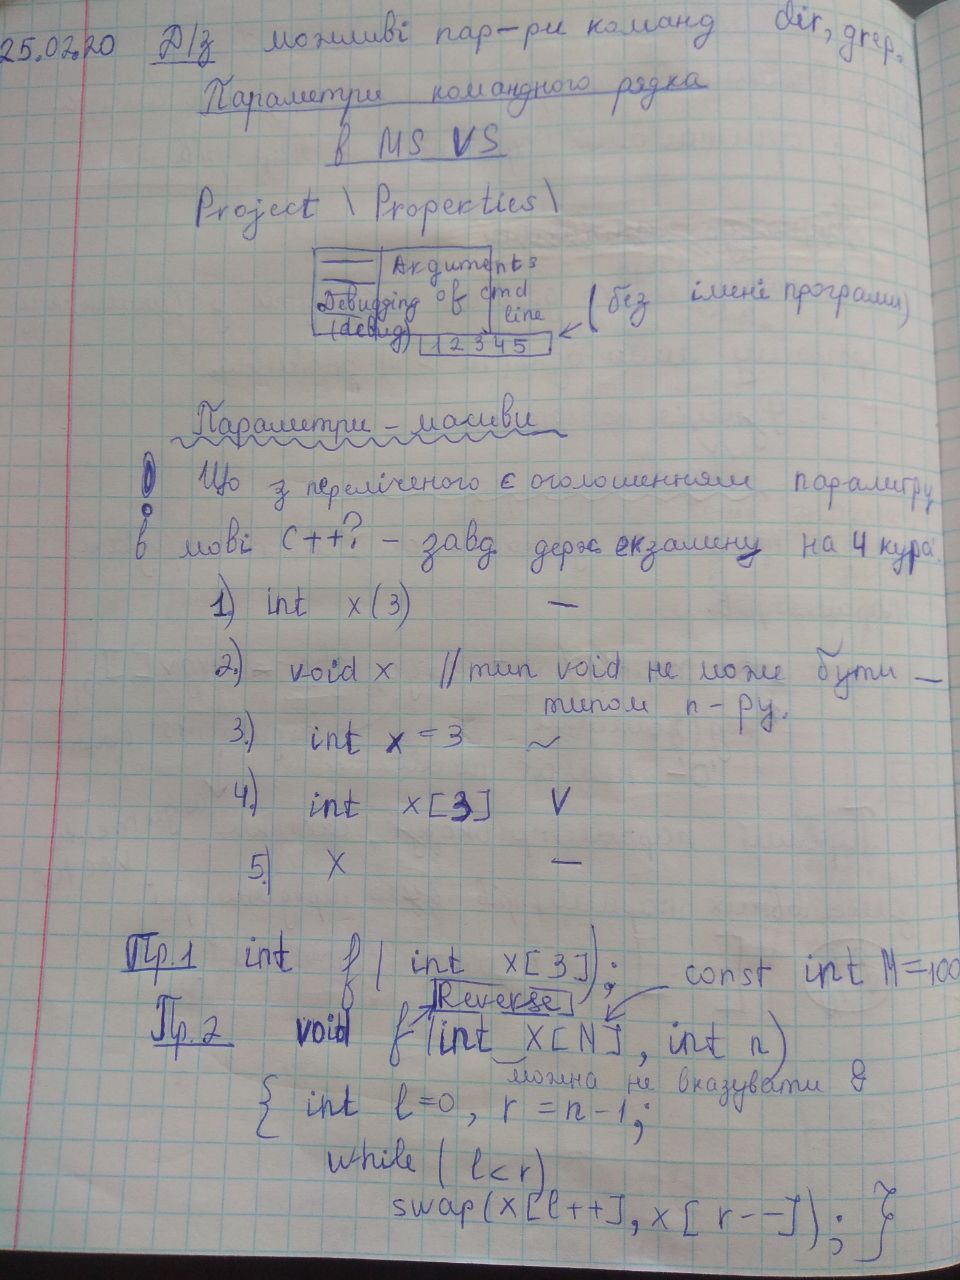 25.02.20 Д/з можливі пар-ри команд dir, grep.
Параметри командного рядка
в MS VS
Project \ Properties \
Arguments
Debugging of cmd
(debug) line
1 2 3 4 5
(без імені програми)
Параметри - масиви
Що з переліченого є оголошенням параметру
в мові C++? - завд держ екзамену на 4 курсі
1) int x(3) —
2) - void x // тип void не може бути —
типом п-ру.
3) int x = 3 ~
4) int x[3] V
5) X —
Пр.1 int f( int x[3]); const int N=100
Reverse
Пр.2 void f(int X[N], int n)
можна не вказувати
{ int l=0, r = n-1;
while ( l<r)
swap(x[l++], x[r--]); }